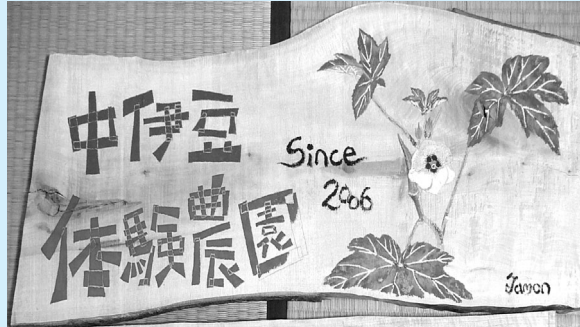 中伊豆
体験農園
Since
2006
Jamon